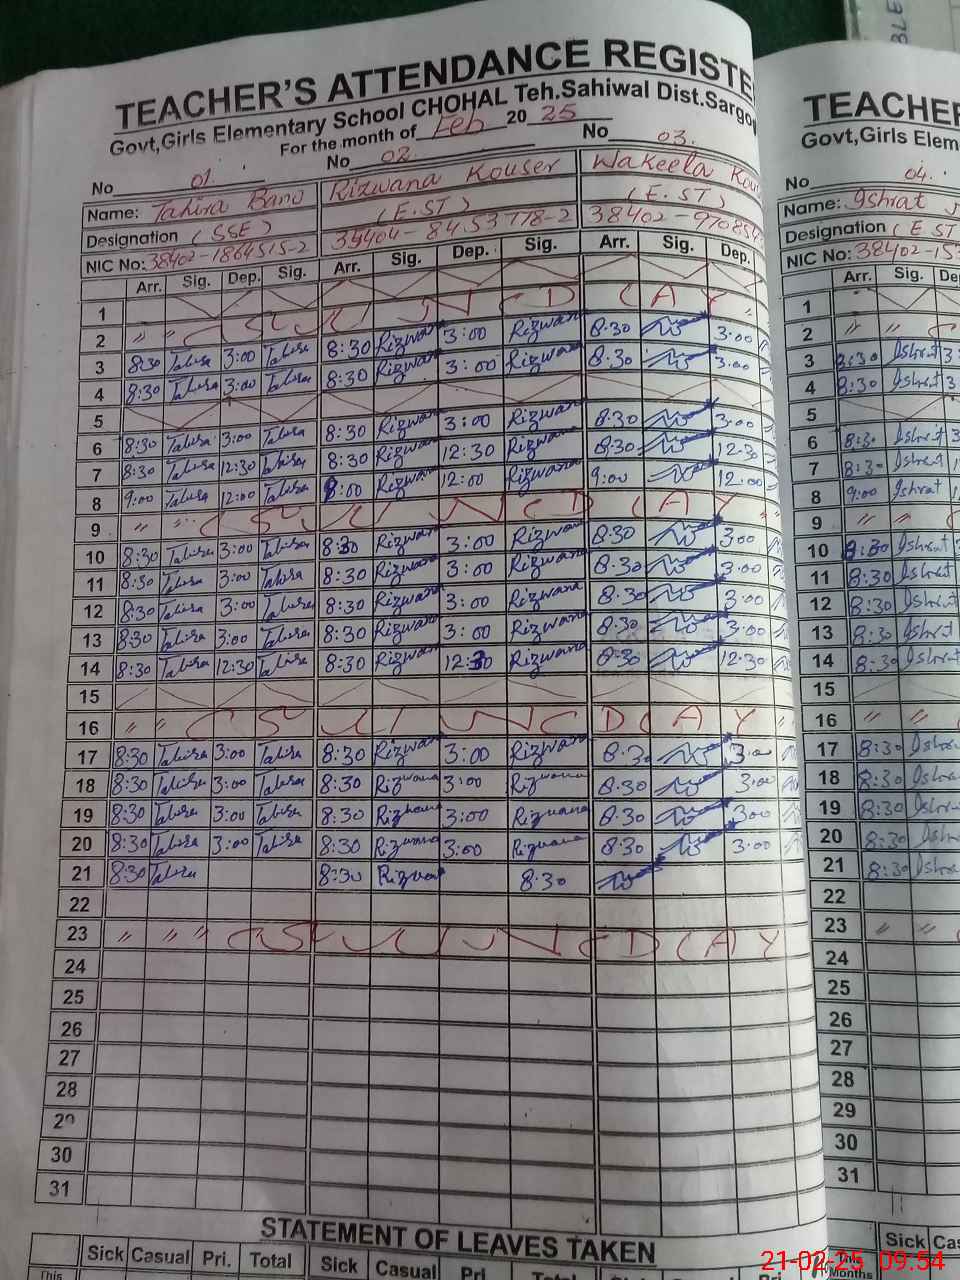 BLE
TEACHER'S ATTENDANCE REGISTE
Govt,Girls Elementary School CHOHAL Teh.Sahiwal Dist.Sargo
For the month of Feb 20 25
No 01. No 02. No 03.
Name: Tahira Bano Rizwana Kouser Wakeela Kou
Designation (SSE) (E.ST) (E.ST)
NIC No: 38402-1864515-2 38402-970854
Arr. Sig. Dep. Sig. Arr. Sig. Dep. Sig. Arr. Sig. Dep.
1
2 " " SUNDAY
3 8:30 Tahira 3:00 Tahira 8:30 Rizwana 3:00 Rizwana 8.30 3.00
4 8:30 Tahira 3:00 Tahira 8:30 Rizwana 3:00 Rizwana 8.30 3.00
5
6 8:30 Tahira 3:00 Tahira 8:30 Rizwana 3:00 Rizwana 8.30 3.00
7 8:30 Tahira 12:30 Tahira 8:30 Rizwana 12:30 Rizwana 8.30 12.30
8 9:00 Tahira 12:00 Tahira :00 Rizwana 12:00 Rizwana 9:00 12.00
9 " " SUNDAY
10 8:30 Tahira 3:00 Tahira 8:30 Rizwana 3:00 Rizwana 8.30 3.00
11 8:30 Tahira 3:00 Tahira 8:30 Rizwana 3:00 Rizwana 8.30 3.00
12 8:30 Tahira 3:00 Tahira 8:30 Rizwana 3:00 Rizwana 8.30 3.00
13 8:30 Tahira 3:00 Tahira 8:30 Rizwana 3:00 Rizwana 8.30 3.00
14 8:30 Tahira 12:30 Tahira 8:30 Rizwana 12:30 Rizwana 8.30 12.30
15
16 " " SUNDAY
17 8:30 Tahira 3:00 Tahira 8:30 Rizwana 3:00 Rizwana 8.30 3.00
18 8:30 Tahira 3:00 Tahira 8:30 Rizwana 3:00 Rizwana 8.30 3.00
19 8:30 Tahira 3:00 Tahira 8:30 Rizwana 3:00 Rizwana 8.30 3.00
20 8:30 Tahira 3:00 Tahira 8:30 Rizwana 3:00 Rizwana 8.30 3.00
21 8:30 Tahira 8:30 Rizwana 8.30
22
23 " " " SUNDAY
24
25
26
27
28
29
30
31
STATEMENT OF LEAVES TAKEN
Sick Casual Pri. Total Sick Casual Pri Total
This
TEACHER
Govt,Girls Elem
No 04.
Name: Ishrat
Designation (E ST
NIC No: 38402-153
Arr. Sig. De
1
2 " "
3 8:30 Ishrat 3
4 8:30 Ishrat 3
5
6 8:30 Ishrat 3
7 8:30 Ishrat
8 9:00 Ishrat
9 " "
10 8:30 Ishrat
11 8:30 Ishrat
12 8:30 Ishrat
13 8:30 Ishrat
14 8:30 Ishrat
15
16 " "
17 8:30 Ishra
18 8:30 Ishra
19 8:30 Ishra
20 8:30 Ishra
21 8:30 Ishra
22
23 " "
24
25
26
27
28
29
30
31
Sick Cas
This
Months
21-02-25 09:54